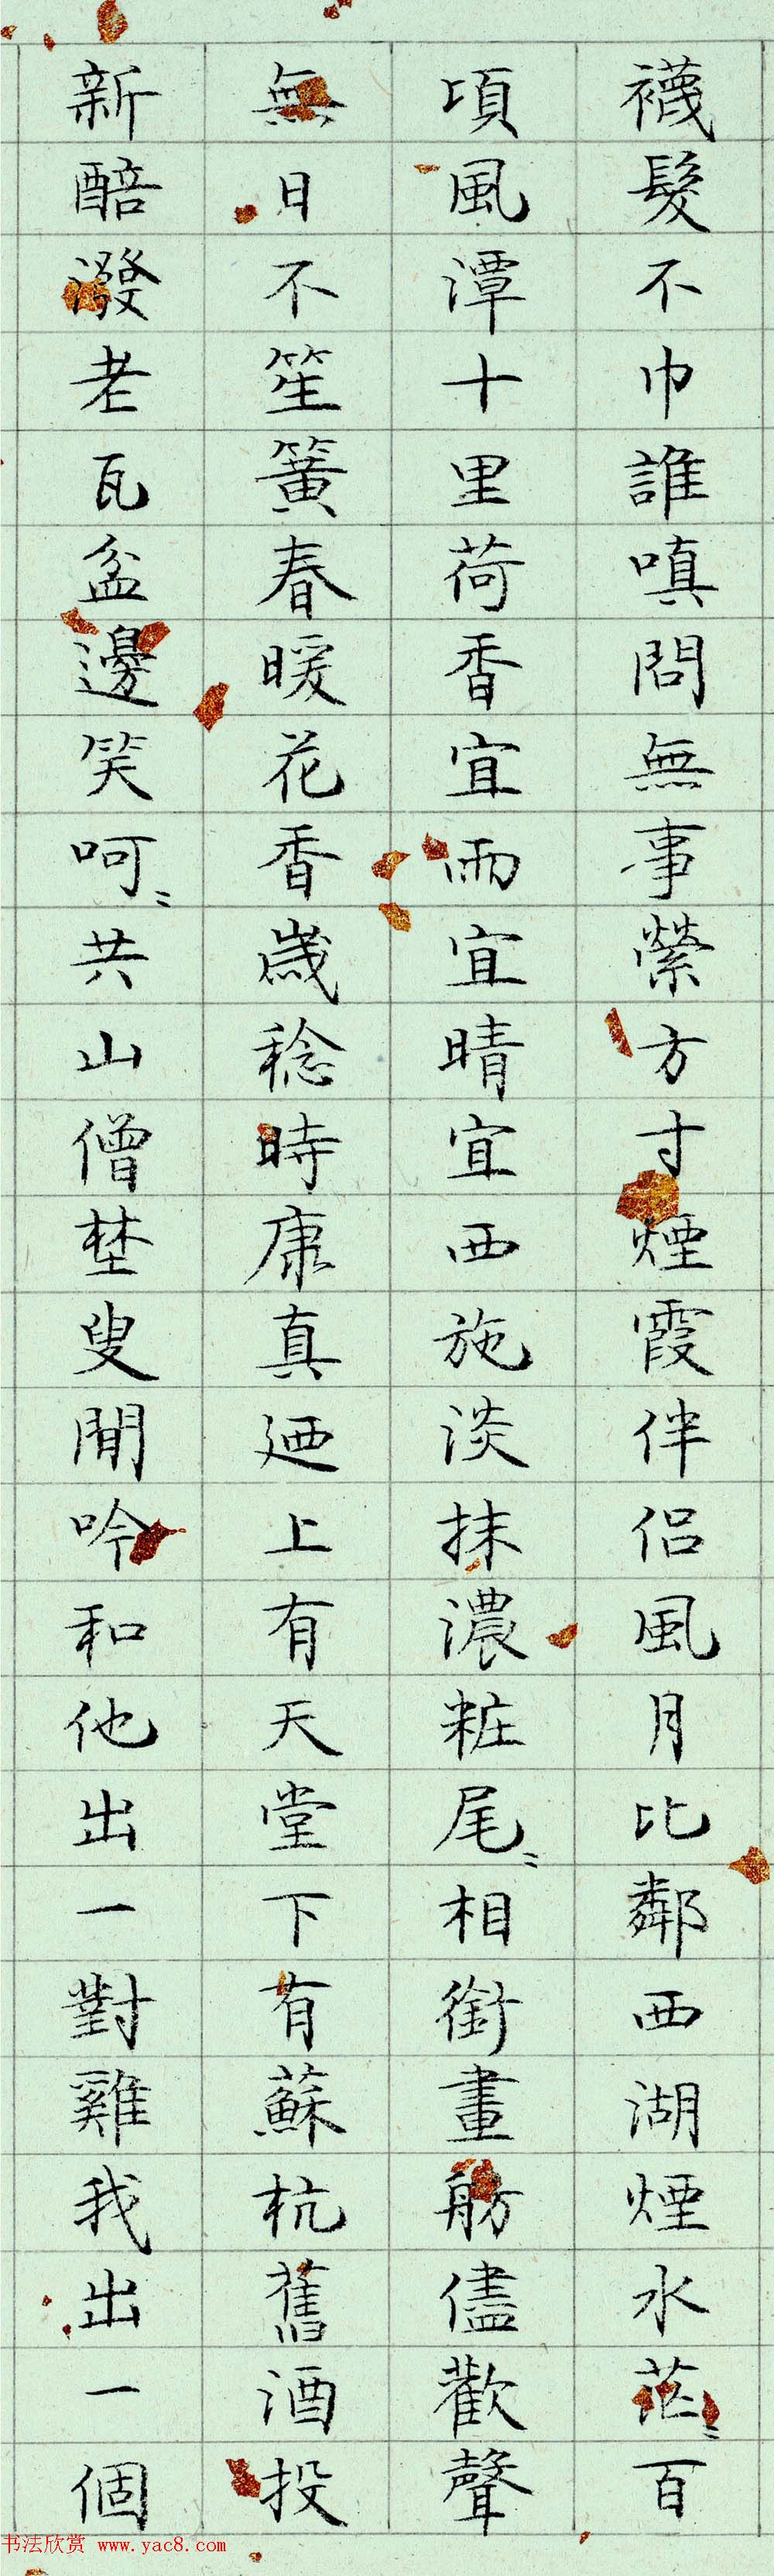 襪髮不巾誰嗔問無事縈方寸煙霞伴侶風月比鄰西湖煙水茫〻百
頃風潭十里荷香宜雨宜晴宜西施淡抹濃粧尾〻相銜畫舫儘歡聲
無日不笙簧春暖花香歲稔時康真廼上有天堂下有蘇杭舊酒投
新醅潑老瓦盆邊笑呵〻共山僧埜叟閒吟和他出一對雞我出一個
书法欣赏 www.yac8.com